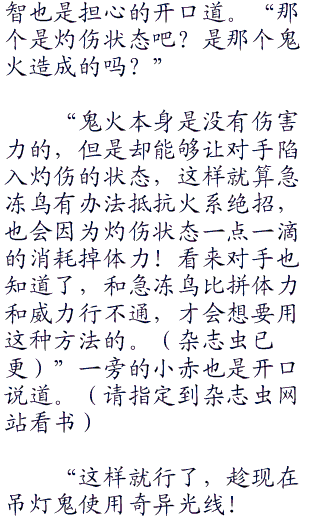 智也是担心的开口道。“那
个是灼伤状态吧？是那个鬼
火造成的吗？”
“鬼火本身是没有伤害
力的，但是却能够让对手陷
入灼伤的状态，这样就算急
冻鸟有办法抵抗火系绝招，
也会因为灼伤状态一点一滴
的消耗掉体力！看来对手也
知道了，和急冻鸟比拼体力
和威力行不通，才会想要用
这种方法的。（杂志虫已
更）”一旁的小赤也是开口
说道。（请指定到杂志虫网
站看书）
“这样就行了，趁现在
吊灯鬼使用奇异光线！